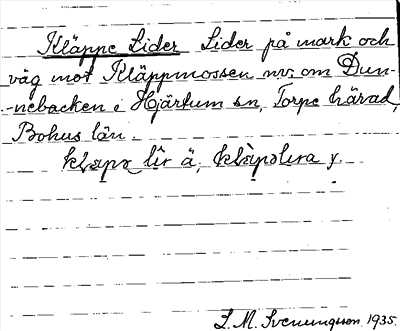 Kläppe Lider Lider på mark och
väg mot Kläppmossen nv. om Dun-
-nebacken i Hjärtum sn, Torpe härad,
Bohus län.
klæpə lìr ä, klæ̀pəlıra y.
S. M. Svenungsson 1935.